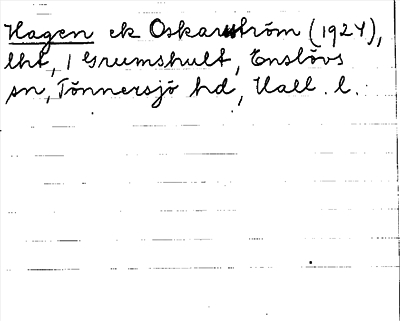 Hagen ek Oskarström (1924),
lht, 1 Grumshult, Enslövs
sn, Tönnersjö hd, Hall. l.